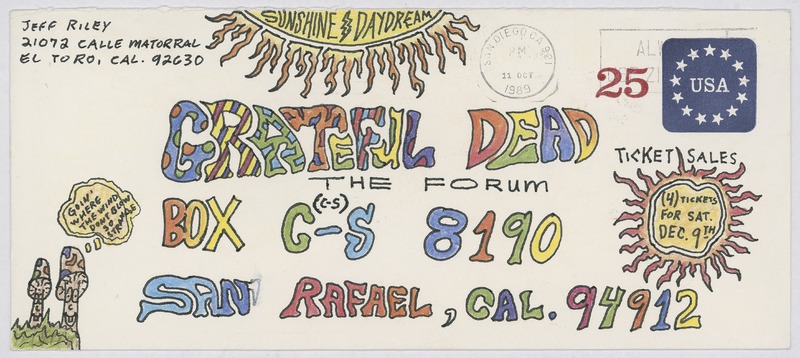 JEFF RILEY
21072 CALLE MATORRAL
EL TORO, CAL. 92630
SUNSHINE DAYDREAM
SAN DIEGO CA 921
PM
11 OCT
1989
25
USA
GRATEFUL DEAD
THE FORUM
TICKET SALES
(4) TICKETS
FOR SAT.
DEC. 9TH
BOX C-S 8190
(C-S)
GOIN'
WHERE
THE WIND
DON'T BLOW
SO
STRANGE
SAN RAFAEL, CAL. 94912